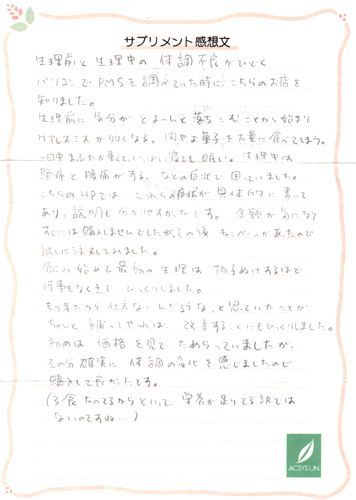 サプリメント感想文
生理前と生理中の体調不良がひどく
パソコンでPMSを調べていた時に、こちらのお店を
知りました。
生理前に気分がどよーんと落ちこむことから始まり
ケアレスミスが多くなる。肉やお菓子を大量に食べてしまう。
一日中まぶたが重くて、いっぱい寝ても眠い。生理中は
頭痛と腰痛がする、などの症状で困っていました。
こちらのHPでは、これらの症状が具体的に書いて
あり、説明も分かりやすかったです。金額が気になり
すぐには購入しませんでしたが、その後キャンペーンがあったので
試しに注文してみました。
飲み始めて最初の生理は拍子ぬけするほど
何事もなくきて、びっくりしました。
もう年だから仕方ないんだろうな、と思っていたことが
ちゃんと補ってやれば、改善することにもびっくりしました。
初めは価格を見てためらっていましたが、
その分確実に体調の変化を感じましたので
購入して良かったです。
(3食たべてるからといって、栄養が足りてる訳では
ないのですね…)
ACSYSUN